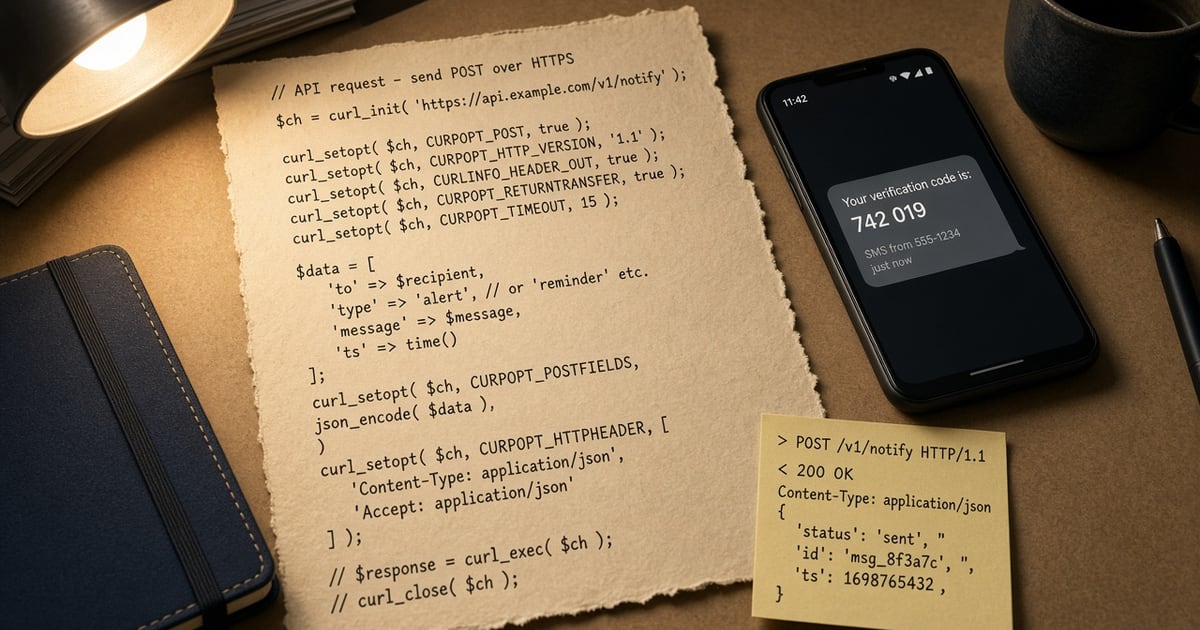 // API request – send POST over HTTPS
$ch = curl_init( 'https://api.example.com/v1/notify' );
curl_setopt( $ch, CURPOPT_POST, true );
curl_setopt( $ch, CURPOPT_HTTP_VERSION, '1.1' );
curl_setopt( $ch, CURLINFO_HEADER_OUT, true );
curl_setopt( $ch, CURPOPT_RETURNTRANSFER, true );
curl_setopt( $ch, CURPOPT_TIMEOUT, 15 );
$data = [
'to' => $recipient,
'type' => 'alert', // or 'reminder' etc.
'message' => $message,
'ts' => time()
];
curl_setopt( $ch, CURPOPT_POSTFIELDS,
json_encode( $data ),
)
curl_setopt( $ch, CURPOPT_HTTPHEADER, [
'Content-Type: application/json',
'Accept: application/json'
] );
// $response = curl_exec( $ch );
// curl_close( $ch );
11:42
Your verification code is:
742 019
SMS from 555-1234
just now
> POST /v1/notify HTTP/1.1
< 200 OK
Content-Type: application/json
{
'status': 'sent', "
'id': 'msg_8f3a7c', ",
'ts': 1698765432 ,
}